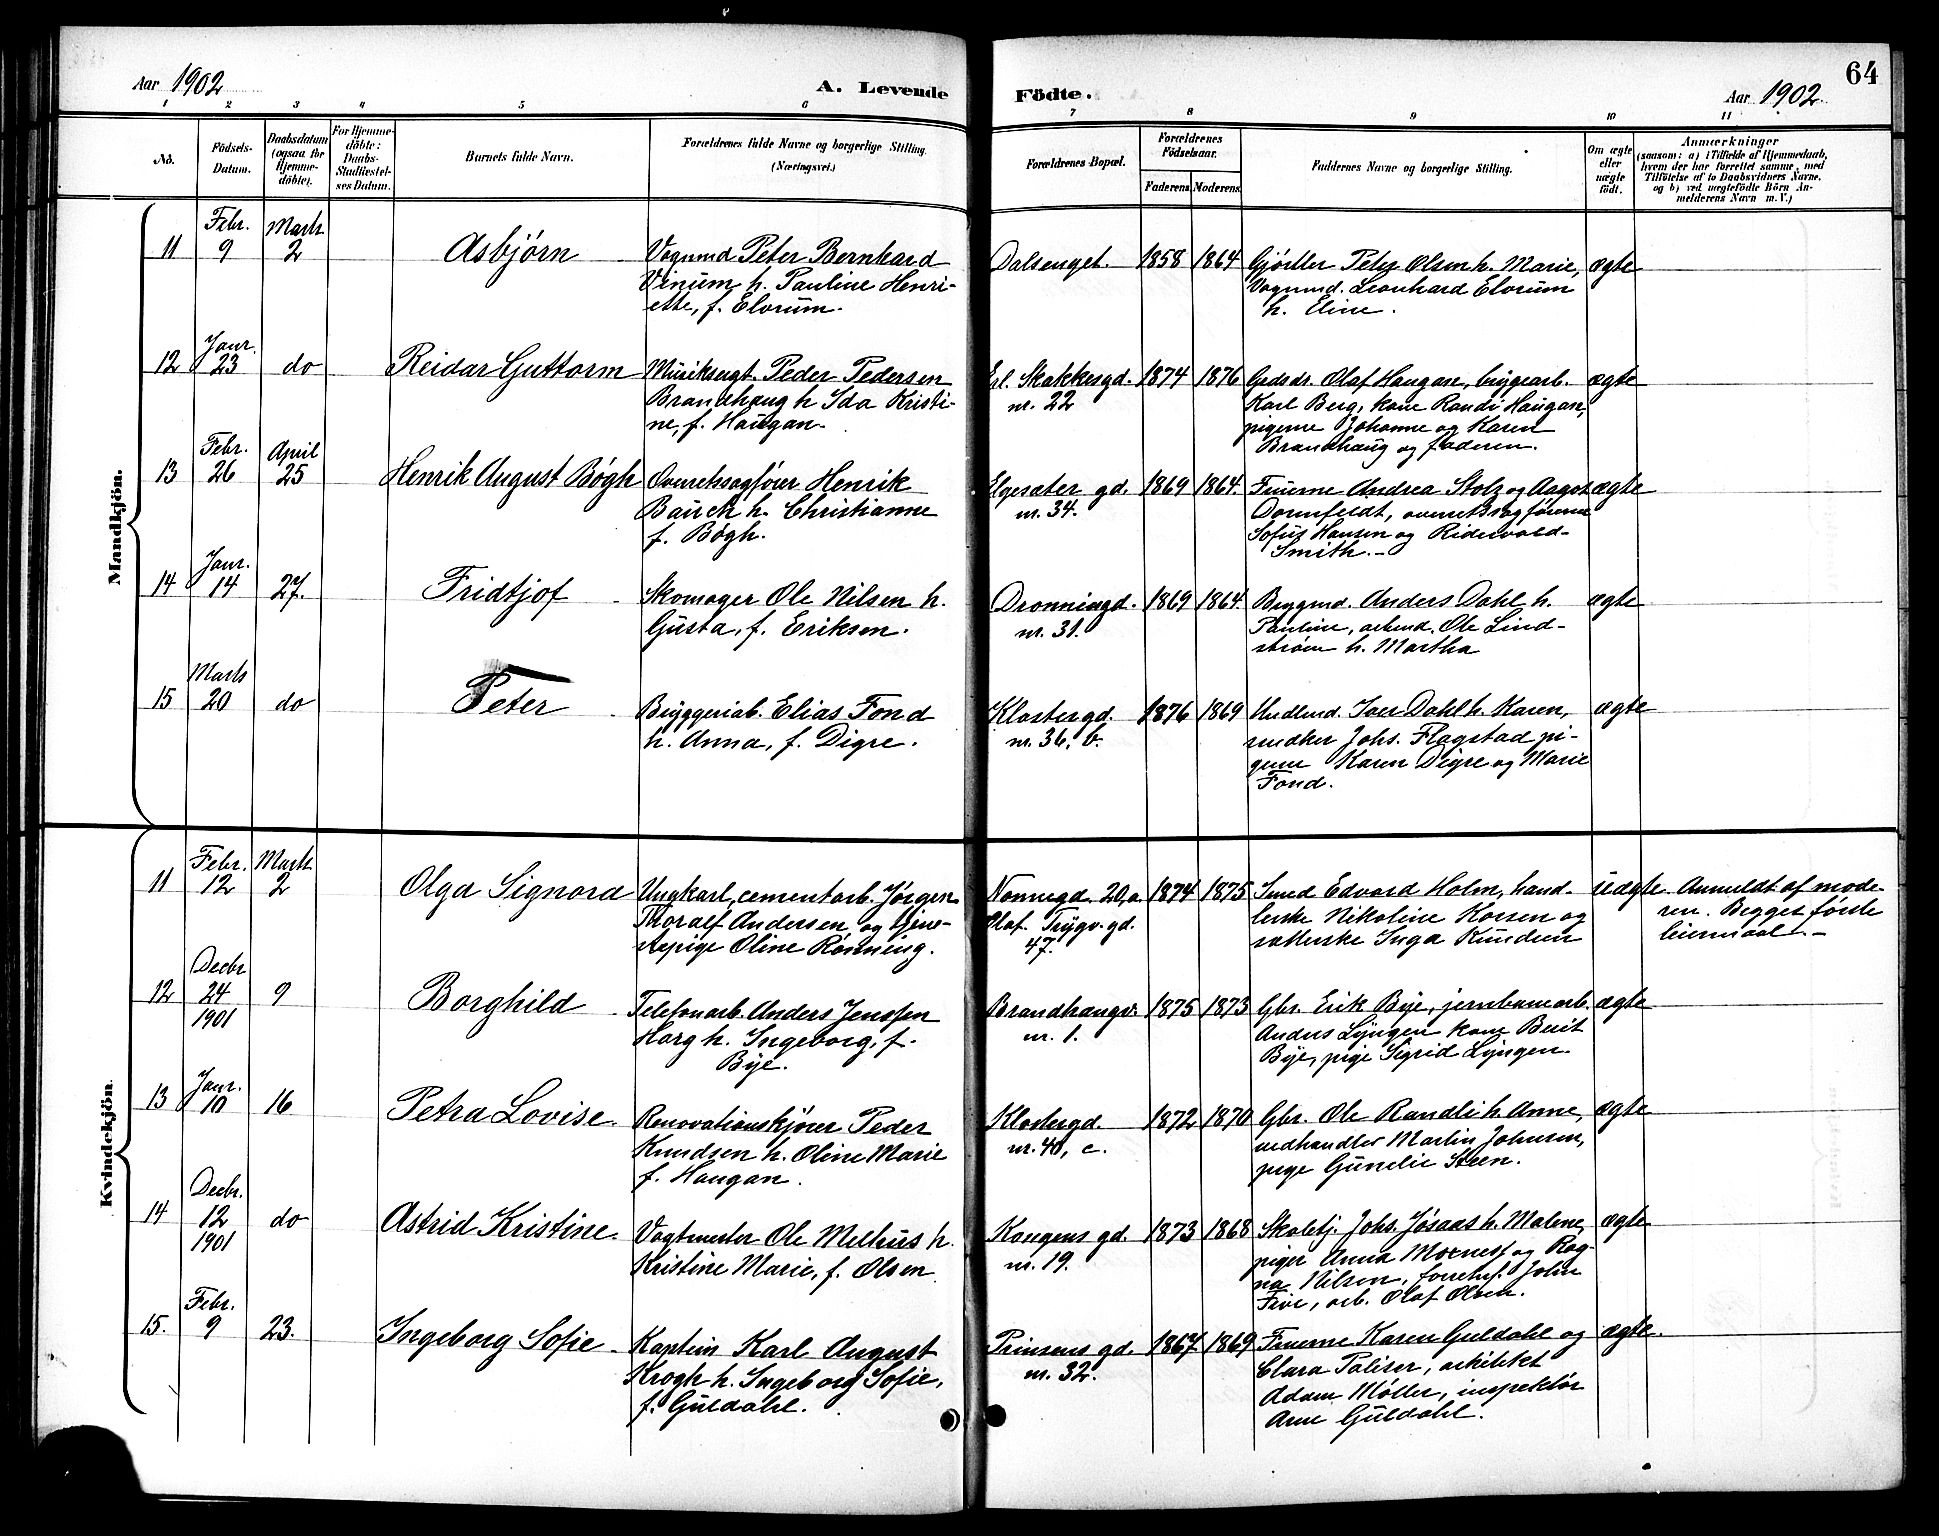 Aar 1902
A. Levende
Födte.
Aar 1902.
64
1 2 3 4 5 6 7 8 9 10 11
No.
Födsels-
Datum.
Daabsdatum
(ogsaa for
Hjemme-
döbte).
For Hjemme-
döbte:
Daabs-
Stadfæstel-
ses Datum.
Barnets fulde Navn.
Forældrenes fulde Navne og borgerlige Stilling.
(Næringsvei.)
Forældrenes Bopæl.
Forældrenes
Födselsaar.
Faderens.
Moderens.
Faddernes Navne og borgerlige Stilling.
Om ægte
eller
uægte
födt.
Anmærkninger
(saasom: a) i Tilfælde af Hjemmedaab,
hvem der har forrettet samme, med
Tilföielse af to Daabsvidners Navne,
og b) ved uægtefödte Börn An-
melderens Navn m. V.)
Mandkjön.
11 Febr. 9 Marts 2 Asbjørn
Vognmd Peter Bernhard
Vinum h. Pauline Henri-
ette, f. Elvrum.
Dalsenget. 1858 1864
Gjørtler Peter Olsen h. Marie,
Vognmd. Leonhard Elvrum
h. Eline.
ægte
12 Janr. 23 do Reidar Guttorm
Musiksugt. Peder Pedersen
Brandhaug h Ida Kristi-
ne, f. Haugan.
Erl. Skakkesgd.
nr. 22
1874 1876
Grdsdr. Olaf Haugan, bygearb.
Karl Berg, kone Randi Haugan,
pigerne Johanne og Karen
Brandhaug og faderen.
ægte
13 Febr. 26 April 25 Henrik August Bøgh
Overretssagfører Henrik
Bauck h. Christianne
f. Bøgh.
Elgesæter gd.
nr. 34.
1869 1864.
Fruerne Andrea Stolz og Aagot
Dornfeldt, overretssagførerne
Sofus Hansen og Ridervold-
Smith.-
ægte
14 Janr. 14 27. Fridtjof
Skomager Ole Nilsen h.
Gusta, f. Eriksen.
Dronningd.
nr. 31.
1869 1864
Byggmd. Anders Dahl h.
Pauline, arbmd. Ole Lind-
strøm h. Martha
ægte
15 Marts 20 do Peter
Bryggeriab. Elias Fond
h. Anna, f. Digre.
Klostergd.
nr. 36, b.
1876 1869
Hndlmd. Iver Dahl h. Karen,
snedker Johs. Flagstad pi-
gerne Karen Digre og Marie
Fond.
ægte
Kvindekjön.
11 Febr. 12 Marts 2 Olga Signora
Ungkarl, cementarb. Jørgen
Thoralf Andersen og tjene-
stepige Oline Rønning.
Nonnegd. 20, a
Olaf Trygv. gd.
47.
1874 1875
Smed Edvard Holm, hand-
lerske Nikoline Korsen og
sætterske Inga Knudsen
uægte
Anmeldt af mode-
ren. Begges første
leiermaal. -
12 Decbr 24 1901 9 Borghild
Telefonarb. Anders Jenssen
Horg h. Ingeborg, f.
Bye.
Brandhaugv.
nr. 1.
1875 1873
Gbr. Erik Bye, jernbanearb.
Anders Lyngen kone Berit
Bye, pige Sigrid Lyngen.
ægte
13 Janr. 10 16 Petra Lovise.
Renovationskjører Peder
Knudsen h. Oline Marie
f. Haugan.
Klostergd.
nr. 40, c.
1872 1870
Gbr. Ole Randli h. Anne,
vedhandler Martin Johnsen,
pige Gunelie Steen.
ægte
14 Decbr. 12 1901 do Astrid Kristine.
Vagtmester Ole Melhus h.
Kristine Marie, f. Olsen
Kongens gd.
nr. 19.
1873 1868
Skoletj. Johs. Jøsaas h. Malene,
piger Anna Moxnest og Rag-
na Nilsen, forretnf. John
Five, arb. Olaf Olsen.
ægte
15. Febr. 9 23. Ingeborg Sofie.
Kaptein Karl August
Krogh h. Ingeborg Sofie,
f. Guldahl.
Prinsens gd.
nr. 32.
1867 1869
Fruerne Karen Guldahl og
Clara Paliser, arkitekt
Adam Møller, inspektør
Arne Guldahl.
ægte.